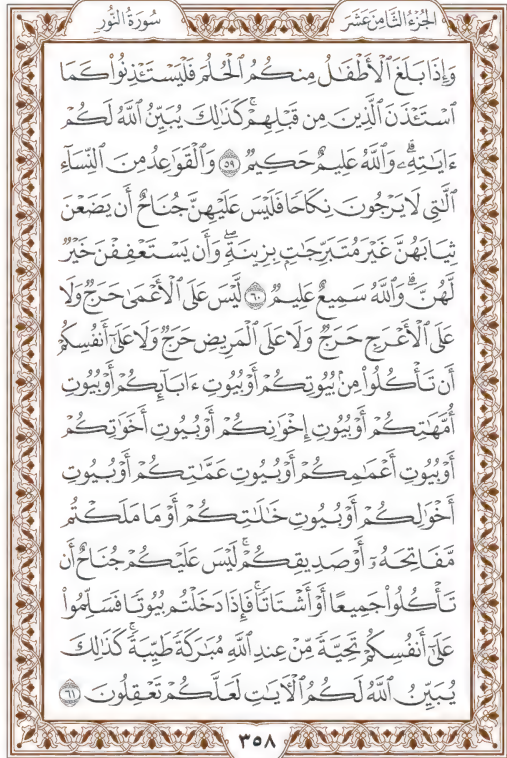 الجُزْءُ الثَّامِنَ عَشَرَ
سُورَةُ النُّورِ
وَإِذَا بَلَغَ ٱلْأَطْفَٰلُ مِنكُمُ ٱلْحُلُمَ فَلْيَسْتَـْٔذِنُوا۟ كَمَا
ٱسْتَـْٔذَنَ ٱلَّذِينَ مِن قَبْلِهِمْ ۚ كَذَٰلِكَ يُبَيِّنُ ٱللَّهُ لَكُمْ
ءَايَٰتِهِۦ ۗ وَٱللَّهُ عَلِيمٌ حَكِيمٌ ٥٩ وَٱلْقَوَٰعِدُ مِنَ ٱلنِّسَآءِ
ٱلَّٰتِى لَا يَرْجُونَ نِكَاحًا فَلَيْسَ عَلَيْهِنَّ جُنَاحٌ أَن يَضَعْنَ
ثِيَابَهُنَّ غَيْرَ مُتَبَرِّجَٰتٍۭ بِزِينَةٍ ۖ وَأَن يَسْتَعْفِفْنَ خَيْرٌ
لَّهُنَّ ۗ وَٱللَّهُ سَمِيعٌ عَلِيمٌ ٦٠ لَّيْسَ عَلَى ٱلْأَعْمَىٰ حَرَجٌ وَلَا
عَلَى ٱلْأَعْرَجِ حَرَجٌ وَلَا عَلَى ٱلْمَرِيضِ حَرَجٌ وَلَا عَلَىٰٓ أَنفُسِكُمْ
أَن تَأْكُلُوا۟ مِنۢ بُيُوتِكُمْ أَوْ بُيُوتِ ءَابَآئِكُمْ أَوْ بُيُوتِ
أُمَّهَٰتِكُمْ أَوْ بُيُوتِ إِخْوَٰنِكُمْ أَوْ بُيُوتِ أَخَوَٰتِكُمْ
أَوْ بُيُوتِ أَعْمَٰمِكُمْ أَوْ بُيُوتِ عَمَّٰتِكُمْ أَوْ بُيُوتِ
أَخْوَٰلِكُمْ أَوْ بُيُوتِ خَٰلَٰتِكُمْ أَوْ مَا مَلَكْتُم
مَّفَاتِحَهُۥٓ أَوْ صَدِيقِكُمْ ۚ لَيْسَ عَلَيْكُمْ جُنَاحٌ أَن
تَأْكُلُوا۟ جَمِيعًا أَوْ أَشْتَاتًا ۚ فَإِذَا دَخَلْتُم بُيُوتًا فَسَلِّمُوا۟
عَلَىٰٓ أَنفُسِكُمْ تَحِيَّةً مِّنْ عِندِ ٱللَّهِ مُبَٰرَكَةً طَيِّبَةً ۚ كَذَٰلِكَ
يُبَيِّنُ ٱللَّهُ لَكُمُ ٱلْـَٔايَٰتِ لَعَلَّكُمْ تَعْقِلُونَ ٦١
٣٥٨